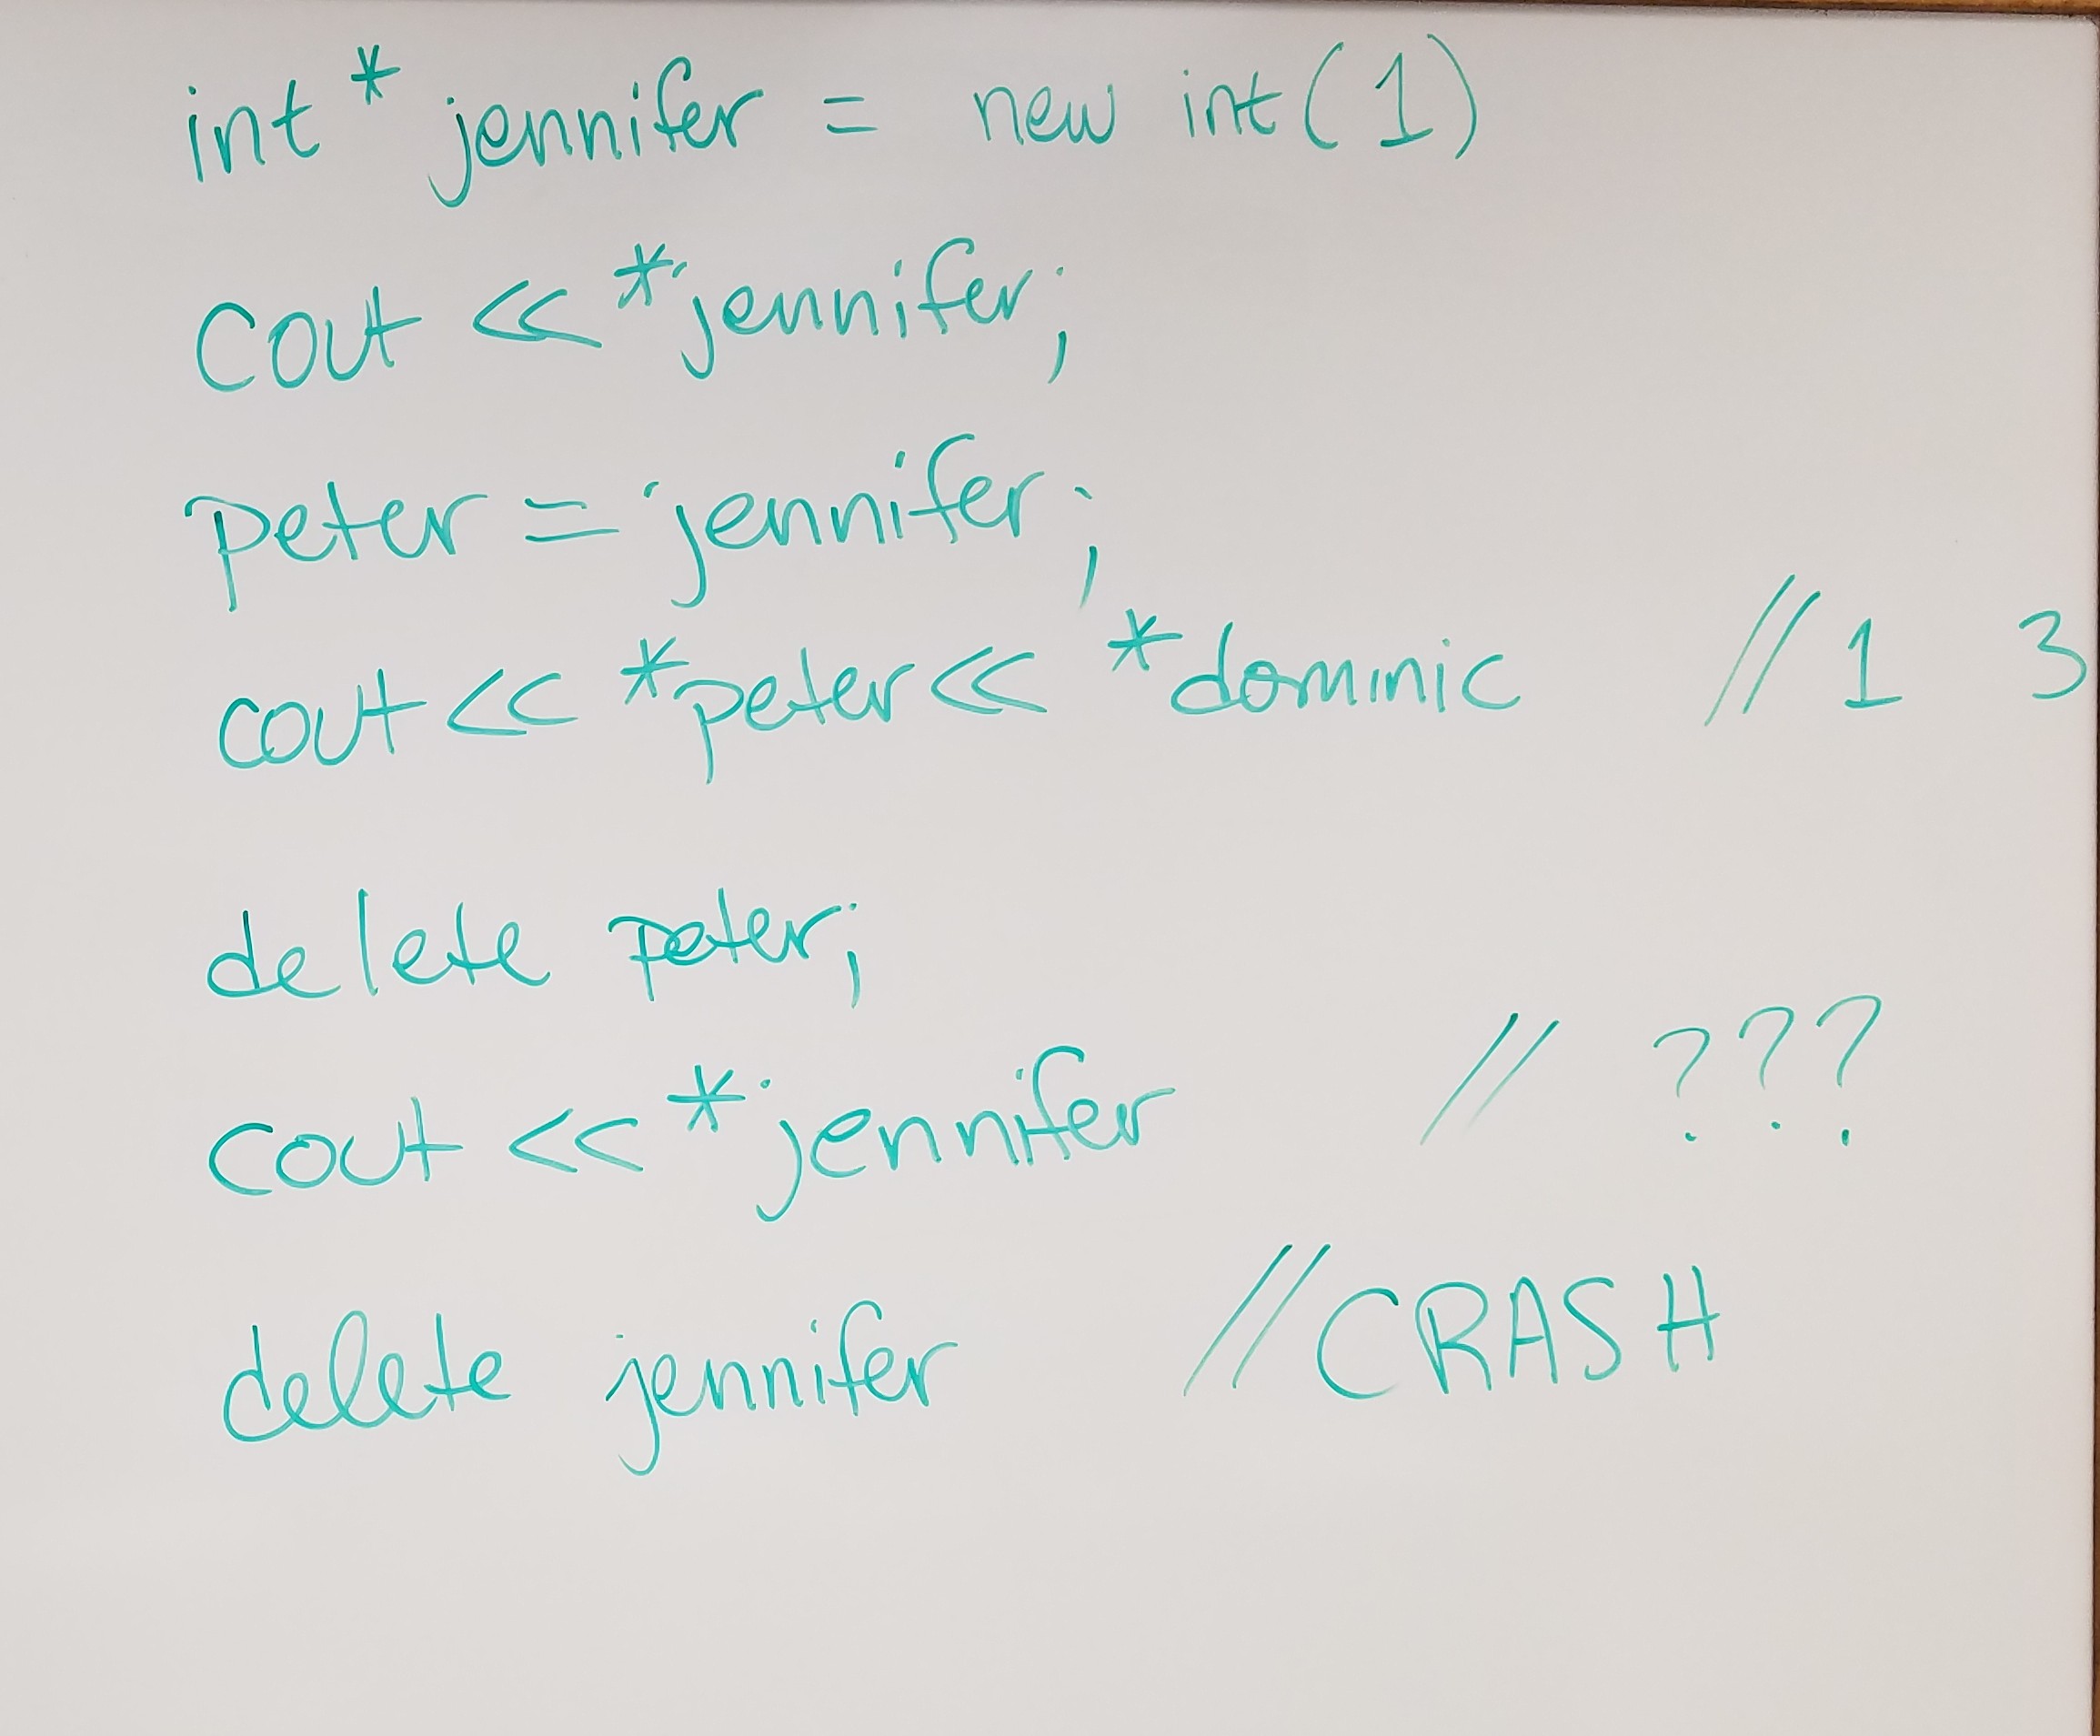 int * jennifer = new int(1)
cout << *jennifer;
peter = jennifer;
cout << *peter << *dominic // 1 3
delete peter;
cout << *jennifer // ???
delete jennifer // CRASH